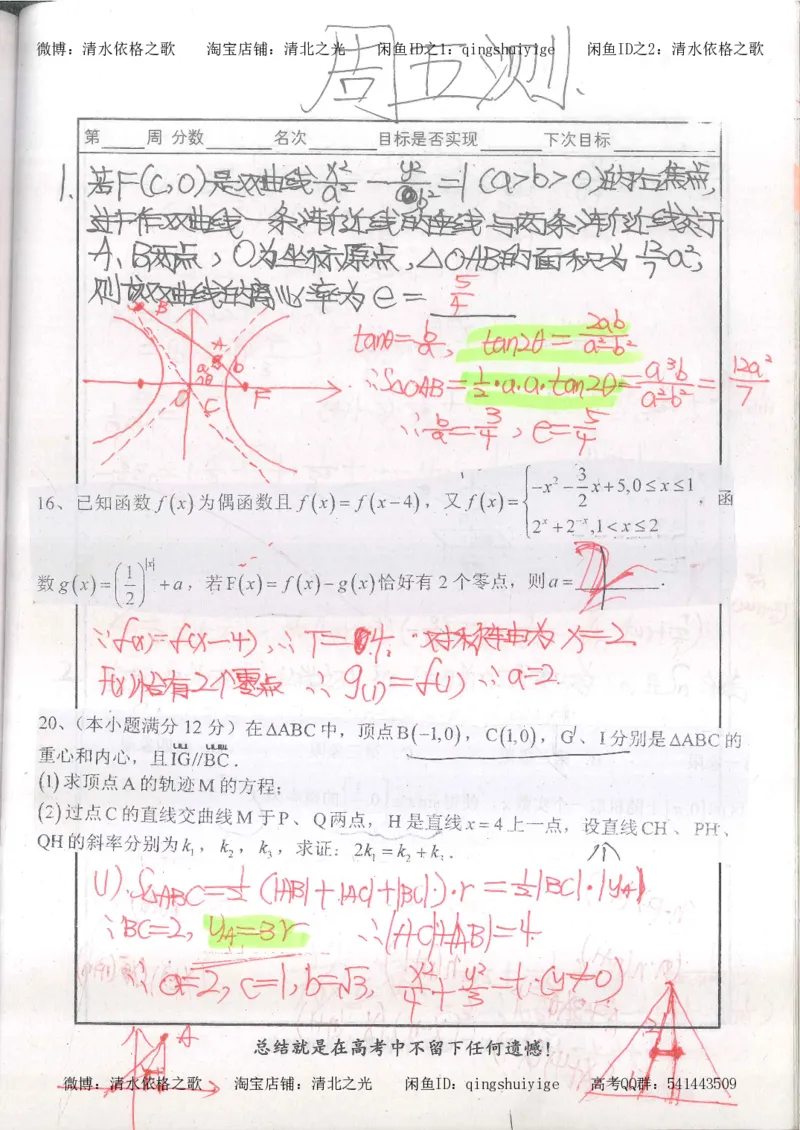 微博：清水依格之歌 淘宝店铺：清北之光 闲鱼ID之1：qingshuiyige 闲鱼ID之2：清水依格之歌
周五测.
第____周 分数______ 名次______ 目标是否实现______ 下次目标
1. 若F(c,0)是双曲线 x²/a² - y²/b² = 1 (a>b>0)的右焦点,
过F作双曲线一条渐近线的垂线与两条渐近线交于
A、B两点，O为坐标原点，△OAB的面积为 12/7 a²,
则该双曲线的离心率为 e = 5/4
tanθ= b/a , tan2θ = 2ab/(a²-b²)
B
A
a
b
θ
O
C
F
∴S△OAB = 1/2·a·a·tan2θ = a³b/(a²-b²) = 12a²/7
∴ b/a = 3/4 , e = 5/4
16、已知函数 f(x) 为偶函数且 f(x)=f(x-4)，又 f(x)={ -x² - 3/2 x+5,0≤x≤1 ; 2^x+2^-x,1<x≤2 ，函
数 g(x)=(1/2)^|x| +a，若F(x)=f(x)-g(x)恰好有 2 个零点，则a=______.
∵f(x)=f(x-4), ∴ T=4, 对称轴为 x=2
F(x)恰有2个零点 ∴ g(1)=f(1) ∴ a=2.
20、（本小题满分 12 分）在ΔABC中，顶点B(-1,0)，C(1,0)，G、I分别是ΔABC的
重心和内心，且IG//BC.
(1)求顶点A的轨迹M的方程;
(2)过点C的直线交曲线M于P、Q两点，H是直线x=4上一点，设直线CH、PH、
QH的斜率分别为k₁，k₂，k₃，求证：2k₁=k₂+k₃.
(1). S△ABC = 1/2 (|AB|+|AC|+|BC|)·r = 1/2|BC|·|yA|
∵BC=2, yA=3r ∴|AC|+|AB|=4.
∴ a=2, c=1, b=√3, x²/4 + y²/3 = 1. (y≠0)
A
2
1
总结就是在高考中不留下任何遗憾！
微博：清水依格之歌 淘宝店铺：清北之光 闲鱼ID：qingshuiyige 高考QQ群：541443509